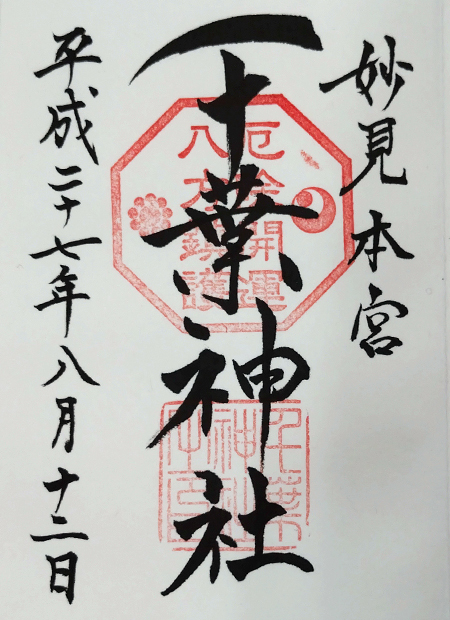 妙見本宮
千葉神社
厄除開運
八方鎮護
平成二十七年八月十二日